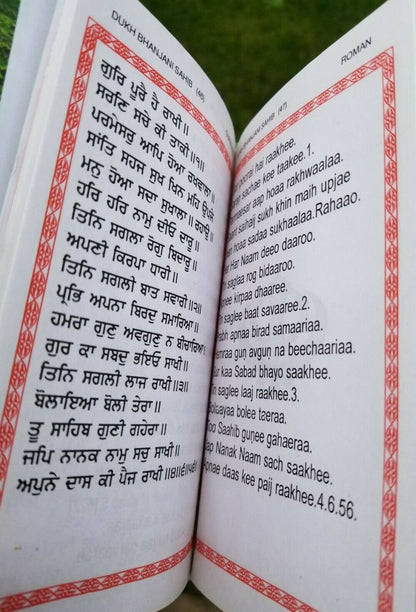 DUKH BHANJANI SAHIB (46)
ਗੁਰਿ ਪੂਰੈ ਹੈ ਰਾਖੀ॥
ਸਰਣਿ ਸਚੇ ਕੀ ਤਾਕੀ॥੧॥
ਪਰਮੇਸਰੁ ਆਪਿ ਹੋਆ ਰਖਵਾਲਾ॥
ਸਾਂਤਿ ਸਹਜ ਸੁਖ ਖਿਨ ਮਹਿ ਉਪਜੇ
ਮਨੁ ਹੋਆ ਸਦਾ ਸੁਖਾਲਾ॥ਰਹਾਉ॥
ਹਰਿ ਹਰਿ ਨਾਮੁ ਦੀਓ ਦਾਰੂ॥
ਤਿਨਿ ਸਗਲਾ ਰੋਗੁ ਬਿਦਾਰੂ॥
ਅਪਣੀ ਕਿਰਪਾ ਧਾਰੀ॥
ਤਿਨਿ ਸਗਲੀ ਬਾਤ ਸਵਾਰੀ॥੨॥
ਪ੍ਰਭਿ ਅਪਨਾ ਬਿਰਦੁ ਸਮਾਰਿਆ॥
ਹਮਰਾ ਗੁਣੁ ਅਵਗੁਣੁ ਨ ਬੀਚਾਰਿਆ॥
ਗੁਰ ਕਾ ਸਬਦੁ ਭਇਓ ਸਾਖੀ॥
ਤਿਨਿ ਸਗਲੀ ਲਾਜ ਰਾਖੀ॥੩॥
ਬੋਲਾਇਆ ਬੋਲੀ ਤੇਰਾ॥
ਤੂ ਸਾਹਿਬੁ ਗੁਣੀ ਗਹੇਰਾ॥
ਜਪਿ ਨਾਨਕ ਨਾਮੁ ਸਚੁ ਸਾਖੀ॥
ਅਪੁਨੇ ਦਾਸ ਕੀ ਪੈਜ ਰਾਖੀ॥੪॥੬॥੫੬॥
SAHIB (47) ROMAN
poorai hai raakhee.
sachae kee taakee.1.
aap hoaa rakhwaalaa.
sahaj sukh khin maih upjae
hoaa sadaa sukhaalaa.Rahaao.
Har Naam deeo daaroo.
saglaa rog bidaaroo.
kirpaa dhaaree.
saglee baat savaaree.2.
apnaa birad samaariaa.
guṇ avguṇ na beechaariaa.
kaa Sabad bhayo saakhee.
saglee laaj raakhee.3.
bolee tzeraa.
Saahib guṇee gahaeraa.
Nanak Naam sach saakhee.
daas kee paij raakhee.4.6.56.